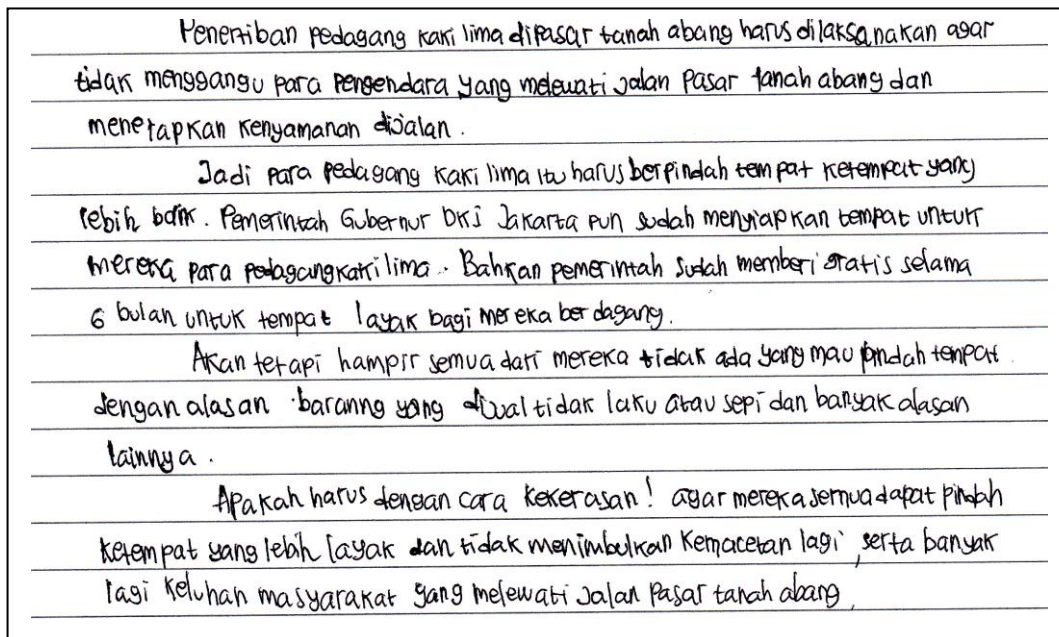 Penertiban pedagang kaki lima dipasar tanah abang harus dilaksanakan agar
tidak menggangu para pengendara yang melewati jalan pasar tanah abang dan
menetapkan kenyamanan dijalan.
Jadi para pedagang kaki lima itu harus berpindah tempat ketempat yang
lebih baik. Pemerintah Gubernur DKI Jakarta pun sudah menyiapkan tempat untuk
mereka para pedagang kaki lima. Bahkan pemerintah sudah memberi gratis selama
6 bulan untuk tempat layak bagi mereka berdagang.
Akan tetapi hampir semua dari mereka tidak ada yang mau pindah tempat
dengan alasan baranng yang dijual tidak laku atau sepi dan banyak alasan
lainnya.
Apakah harus dengan cara kekerasan! agar mereka semua dapat pindah
ketempat yang lebih layak dan tidak menimbulkan kemacetan lagi, serta banyak
lagi keluhan masyarakat yang melewati jalan pasar tanah abang,